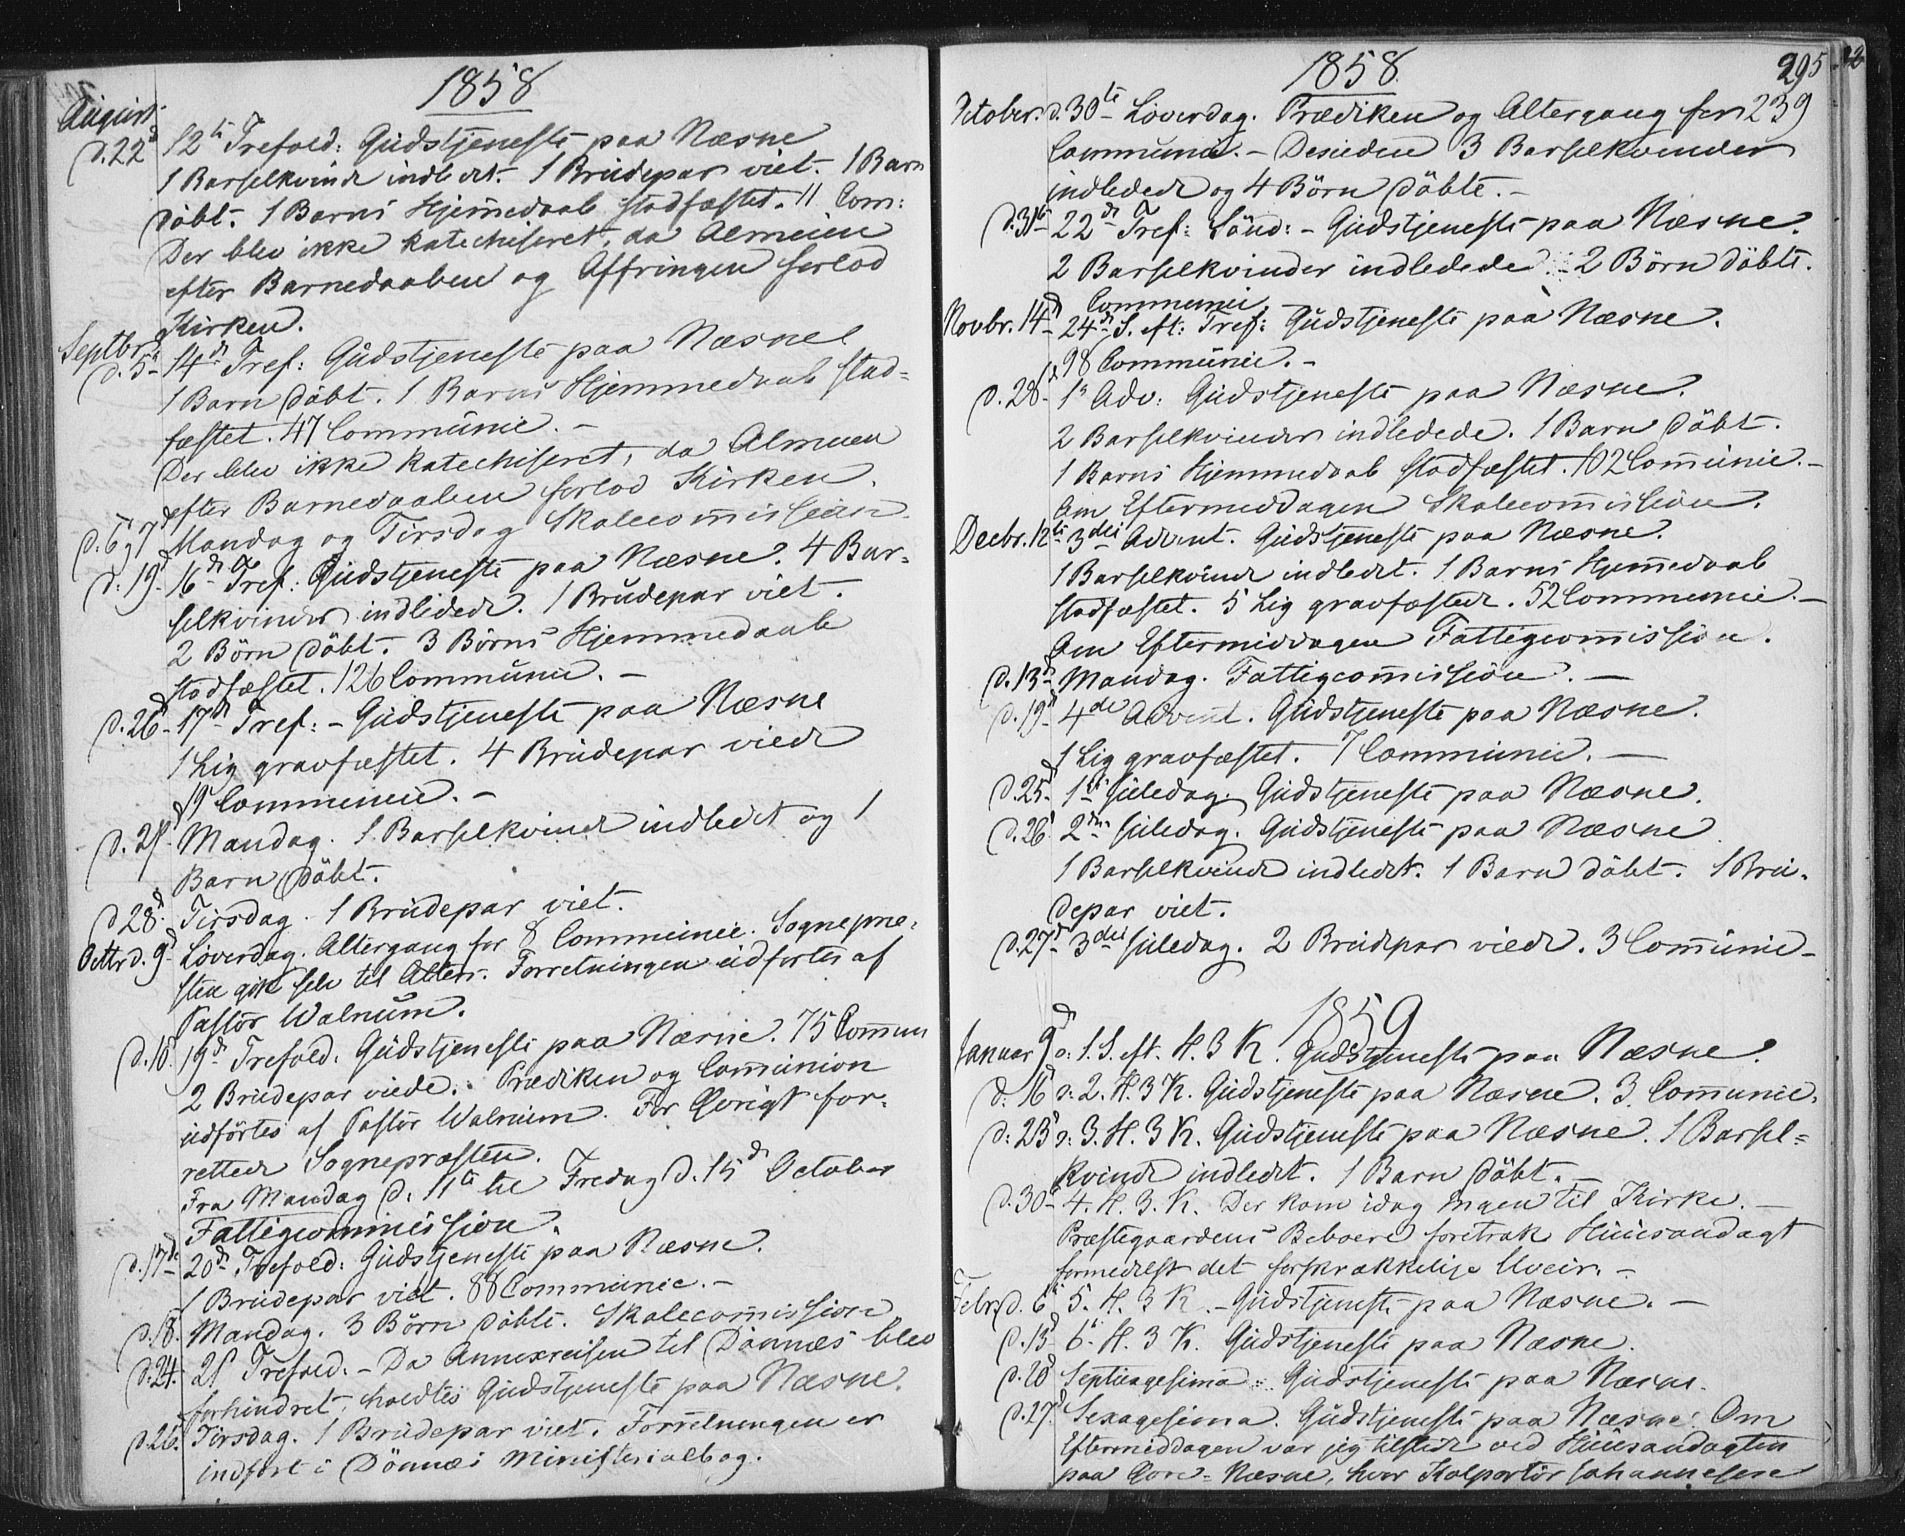 1858
August
d. 22d 12te Trefold: Gudstjeneste paa Næsne
1 Barselkvinde indledet. 1 Brudepar viet. 1 Barn
döbt. 1 Barns Hjemedaab stadfæstet. 11 Com:
Der blev ikke katechiseret, da Almuen
efter Barnedaaben og Offringen forlod
Kirken.
Septbr.
d. 5te 14de Tref: Gudstjeneste paa Næsne
1 Barn döbt. 1 Barns Hjemmedaab stad=
fæstet. 47 Communic. –
Der blev ikke katechiseret, da Almuen
efter Barnedaaben forlod Kirken.
d. 6 og 7 Mandag og Tirsdag Skolecomission
d. 19d 16de Tref: Gudstjeneste paa Næsne. 4 Bar=
selkvinder indledede. 1 Brudepar viet.
2 Börn döbt. 3 Börns Hjemmedaab
stadfæstet. 126 Communic. –
d. 26d 17de Tref: – Gudstjeneste paa Næsne
1 Lig gravfæstet. 4 Brudepar viede
19 Communic. –
d. 27 Mandag. 1 Barselkvinde indledet og 1
Barn döbt.
d 28d Tirsdag. 1 Brudepar viet.
Octbr d. 9d Löverdag. Altergang for 8 Communic. Sognepræ=
sten gik selv til Alters. Forretningen udfortes af
Pastor Walnum.
d. 10 19de Trefold: Gudstjeneste paa Næsne. 75 Commun
2 Brudepar viede. Prædiken og Comunion
udförtes af Pastor Walnum. For Övrigt for=
rettede Sognepræsten.
Fra Mandag d. 11te til Fredag d. 15de October
Fattigcommission.
d. 17de 20de Trefold: Gudstjeneste paa Næsne.
1 Brudepar viet. 88 Communic. –
d. 18. Mandag. 3 Börn döbte. Skolecomission
d. 24. 21 Trefold: – Da Annexreisen til Dönnæs blev
forhindret, holdtes Gudstjeneste paa Næsne.
d. 26. Tirsdag. 1 Brudepar viet. Forretningen er
indfört i Dönnæs Ministerialbog.
1858. 295
October. d. 30te Löverdag. Prædiken og Altergang for 239
Communic. – Desuden 3 Barselkvinder
indledede og 4 Börn döbte. –
d. 31te 22de Tref: Sönd: – Gudstjeneste paa Næsne.
2 Barselkvinder indledede. 2 Börn döbte.
Communic
Novbr. 14d 24de S. eft: Tref: Gudstjeneste paa Næsne.
98 Communic. –
d. 28d 1s Adv: Gudstjeneste paa Næsne.
2 Barselkvinder indledede. 1 Barn döbt.
1 Barns Hjemmedaab stadfæstet. 102 Comunic. –
Om Eftermiddagen Skolecomission.
Decbr. 12te 3die Advent. Gudstjeneste paa Næsne.
1 Barselkvinde indledet. 1 Barns Hjemedaab
stadfæstet. 5 Lig gravfæstede. 52 Communic. –
Om Eftermiddagen Fattigcomission.
d. 13d Mandag. Fattigcomission. –
d. 19d 4de Advent. Gudstjeneste paa Næsne.
1 Lig gravfæstet. 7 Communic. –
d. 25d 1ste Juledag. Gudstjeneste paa Næsne.
d. 26d 2den Juledag. Gudstjeneste paa Næsne
1 Barselkvinde indledet. 1 Barn döbt. 1 Bru=
depar viet.
d. 27d 3die Juledag. 2 Brudepar viede. 3 Comunic –
1859
Januar 9d s: 1. S. eft. H. 3 K. Gudstjeneste paa Næsne.
d: 16 s: 2. H. 3 K. Gudstjeneste paa Næsne. 3 Comunic.
d: 23d s: 3. H. 3 K. Gudstjeneste paa Næsne. 1 Barsel=
kvinde indledet. 1 Barn döbt. –
d. 30d 4. H. 3. K. Der kom idag Ingen til Kirke. –
Præstegaardens Beboere foretrak Huusandagt
formedelst det forskrækkelige Uveir. –
Febr. d. 6te 5. H. 3 K. – Gudstjeneste paa Næsne. –
d. 13d 6te H. 3 K. Gudstjeneste paa Næsne.
d. 20d Septuagesima. Gudstjeneste paa Næsne.
d. 27d Sexagesima. Gudstjeneste paa Næsne. Om
Eftermiddagen var jeg tilstede ved Huusandagten
paa Hore=Næsne, hvor Kolportör Johannesen